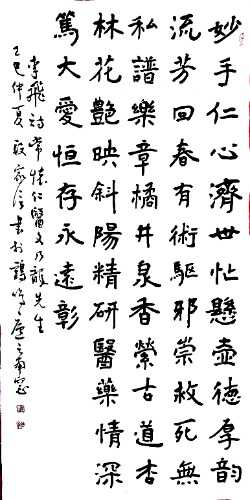 妙手仁心濟世忙懸壺德厚韵
流芳回春有術驅邪祟救死無
私譜樂章橘井泉香縈古道杏
林花艷映斜陽精研醫藥情深
篤大愛恒存永遠彰
李飛詩常懷仁醫文乃龍先生
乙巳仲夏家書於鶴鳴廬之南窗